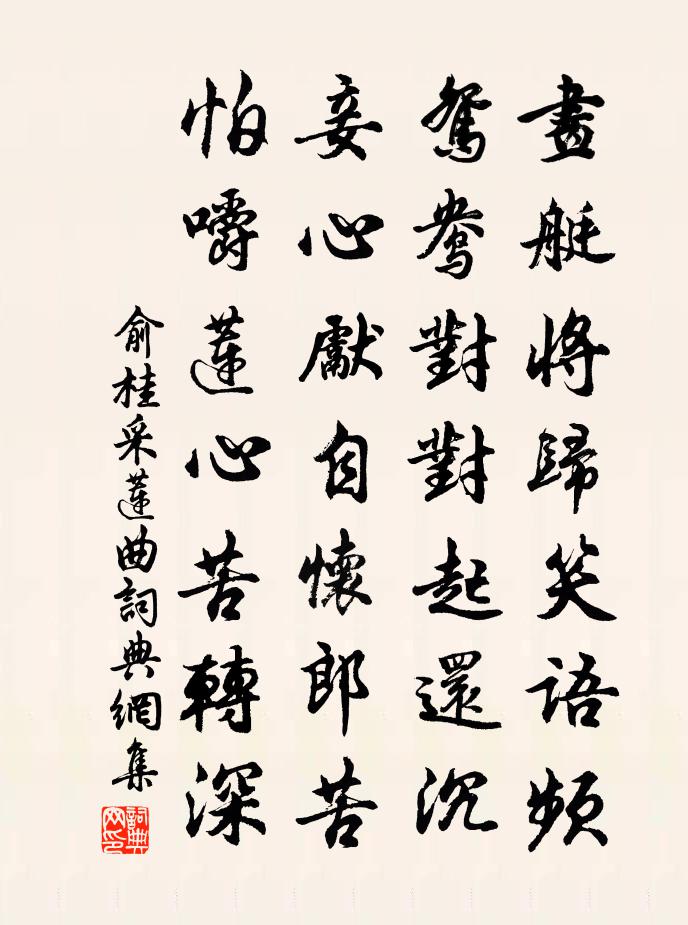 畫艇將歸笑語頻
鴛鴦對對起還沉
妾心獻自懷郎苦
怕嚼蓮心苦轉深
俞桂采蓮曲詞典網集
詞典網印